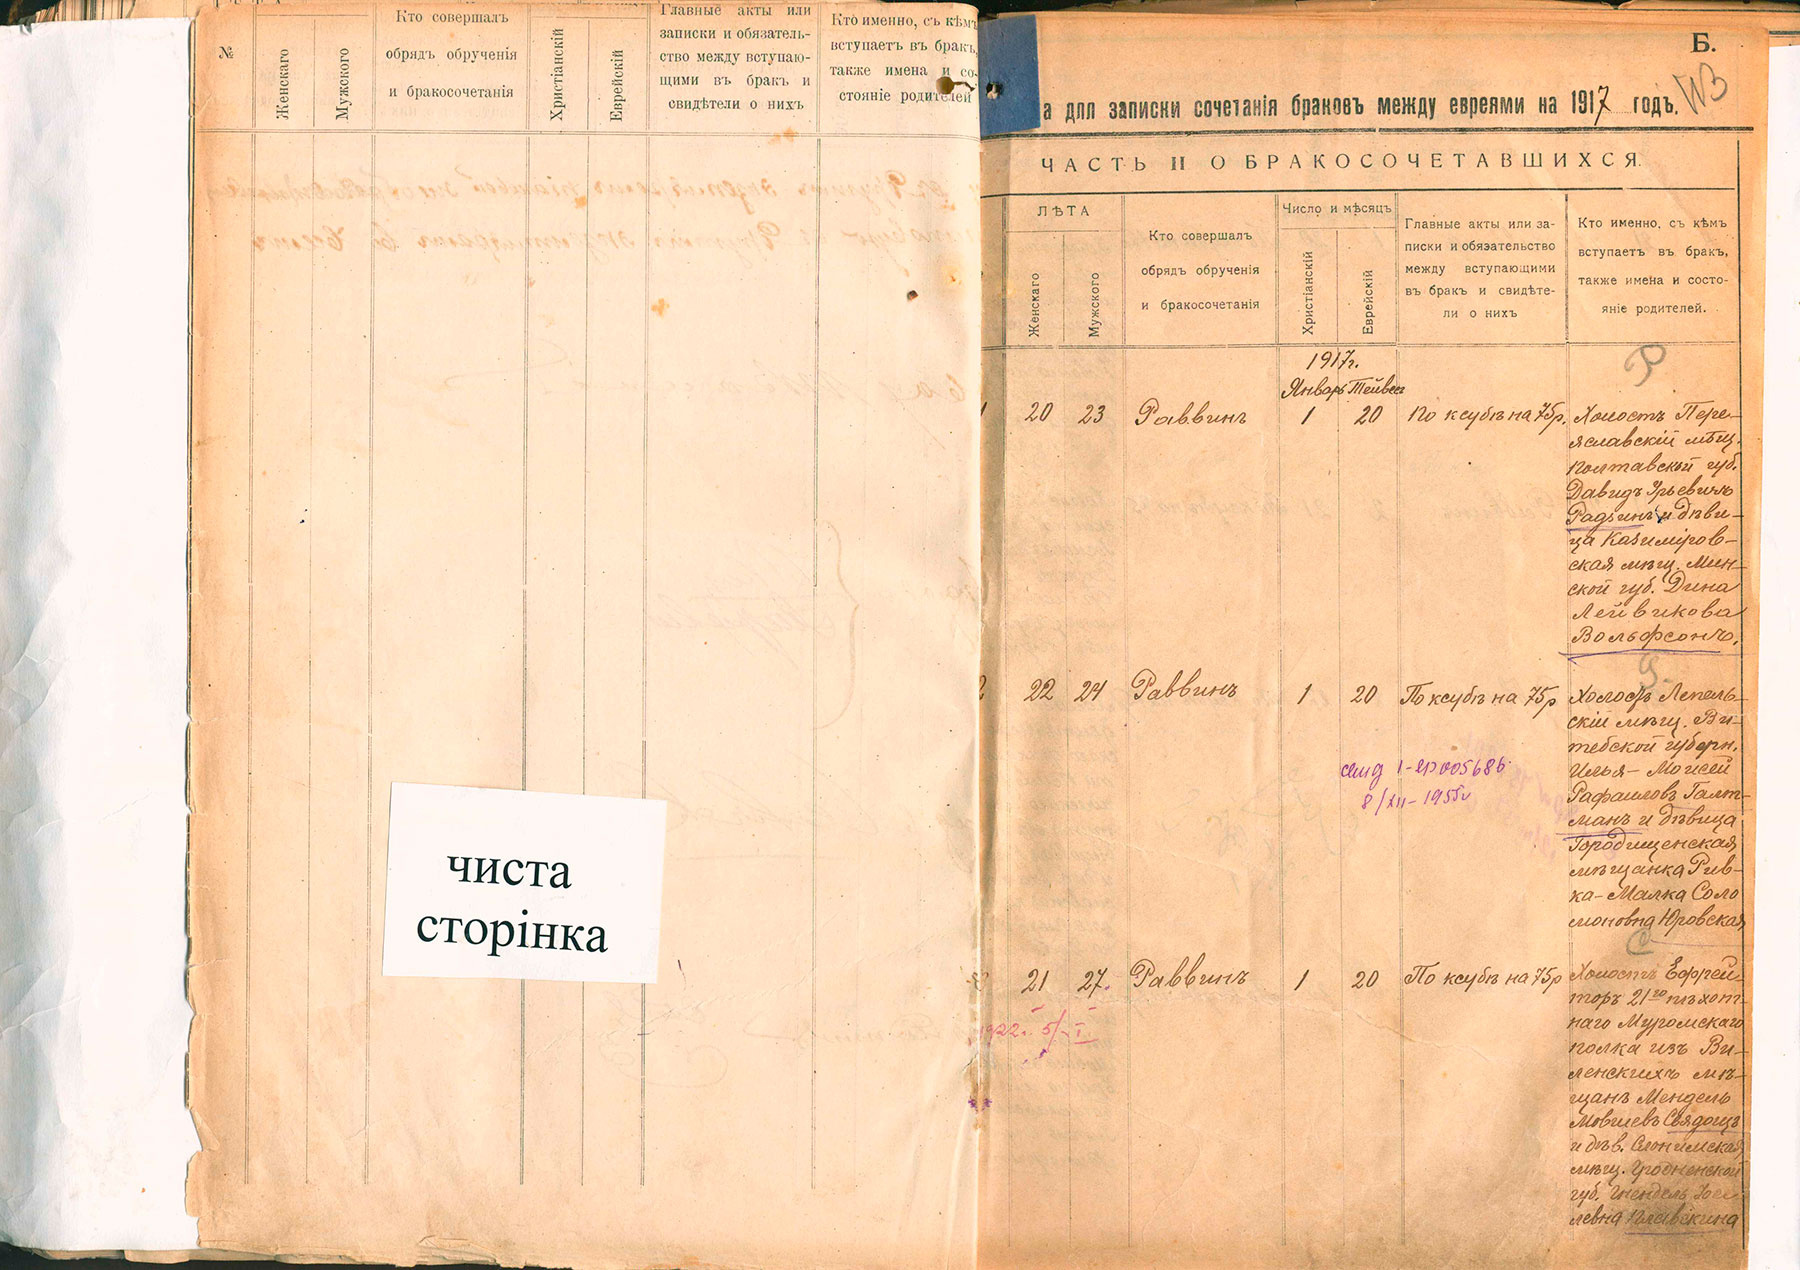 №
Женскаго
Мужского
Кто совершалъ
обрядъ обрученія
и бракосочетанія
Христіанскій
Еврейскій
Главные акты или
записки и обязатель-
ство между вступаю-
щими въ бракъ и
свидѣтели о нихъ
Кто именно, съ кѣмъ
вступаетъ въ бракъ,
также имена и со-
стояніе родителей
чиста
сторінка
Б.
а для записки сочетанія браковъ между евреями на 1917 годъ.
ЧАСТЬ II О БРАКОСОЧЕТАВШИХСЯ.
ЛѢТА
Женскаго
Мужского
Кто совершалъ
обрядъ обрученія
и бракосочетанія
Число и мѣсяцъ
Христіанскій
Еврейскій
Главные акты или за-
писки и обязательство
между вступающими
въ бракъ и свидѣте-
ли о нихъ
Кто именно, съ кѣмъ
вступаетъ въ бракъ,
также имена и состо-
яніе родителей.
1917г.
Январь Тейвес
Р
1 20 23 Раввинъ 1 20 По ксубѣ на 75р.
Холостъ Пере-
яславскій мѣщ.
Полтавской губ.
Давидъ Урьевичъ
Радзинъ и дѣви-
ца Казиміров-
ская мѣщ. Мин-
ской губ. Дина
Лейвикова
Вольфсонъ.
2 22 24 Раввинъ 1 20 По ксубѣ на 75р
Холостъ Лепель-
скій мѣщ. Ви-
тебской губерн.
Илья-Моисей
Рафаиловъ Галт-
манъ и дѣвица
Городищенская
мѣщанка Рив-
ка-Малка Соло
моновна Юровская
8/XII-1955г
С
3 21 27. Раввинъ 1 20 По ксубѣ на 75р
Холостъ Ефрей-
торъ 21го пѣхот-
наго Муромскаго
полка изъ Ви-
ленскихъ мѣ-
щанъ Мендель
Мовшевъ Свядощъ
и дѣв. Слонимская
мѣщ. Гродненской
губ.
левна
1922. 5/I